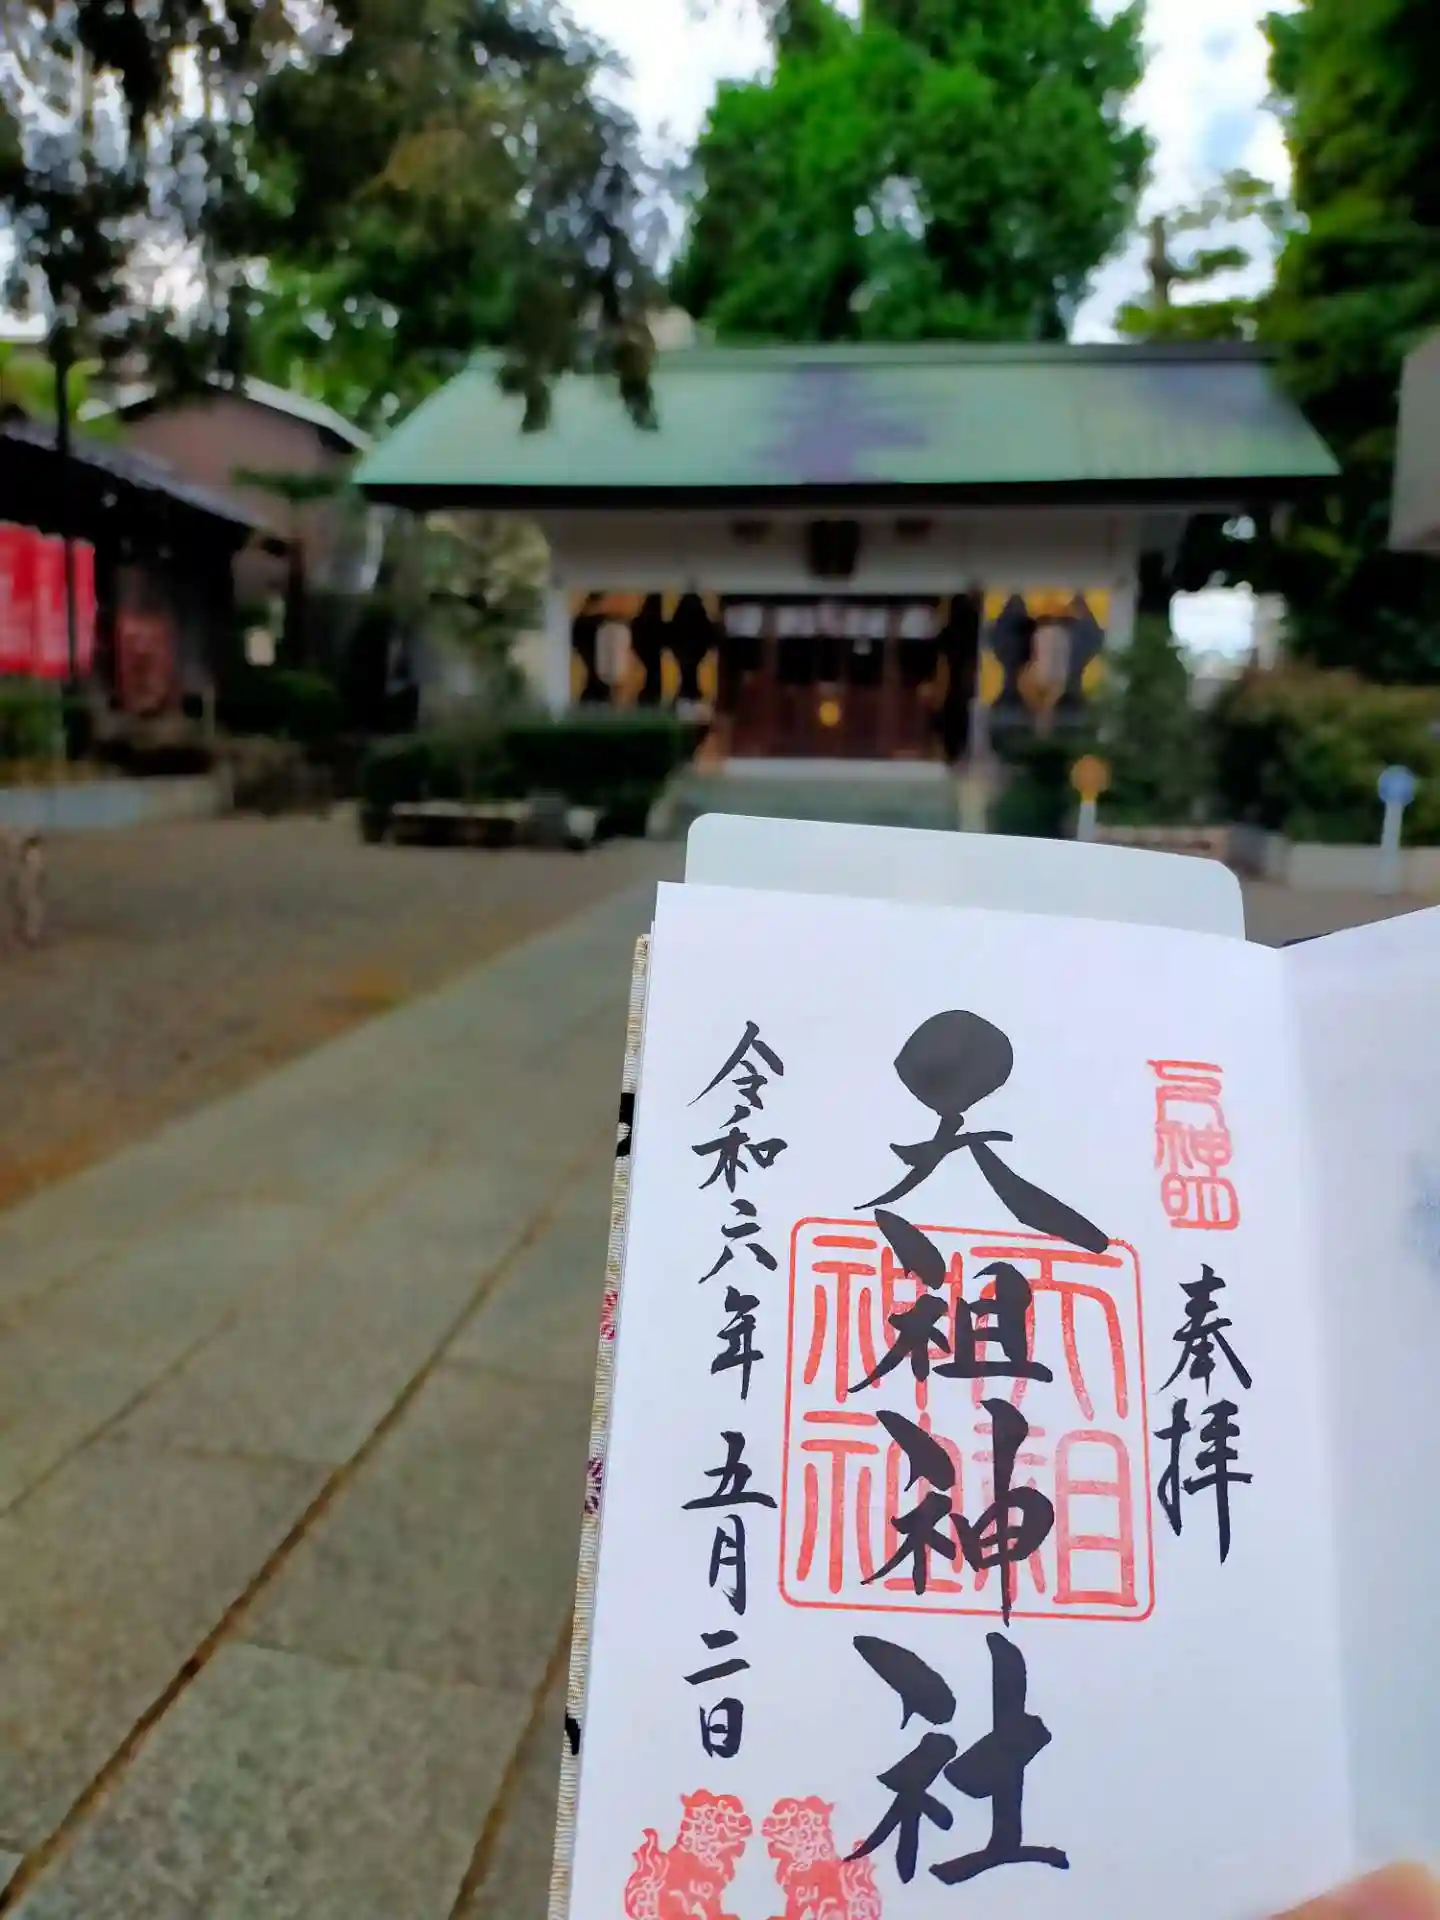 元神明
奉拝
天祖神社
天祖神社
令和六年五月二日